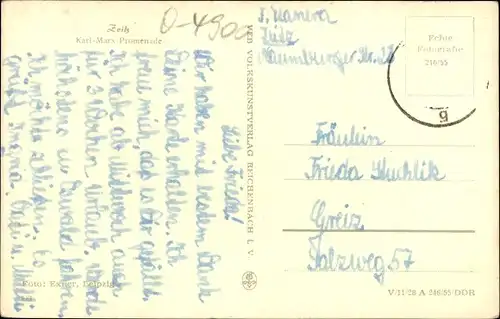 Zeitz
Karl-Marx-Promenade
O-4900
Zeitz
Naumburger Str. 28
Echte
Fotografie
246/55
VEB VOLKSKUNSTVERLAG REICHENBACH I. V.
Liebe Frieda!
Wir haben mit bestem Dank
Deine Karte erhalten. Ich
freue mich, das es Dir gefällt.
Ich habe ab Mittwoch auch
für 3 Wochen Urlaub.
höchstens in fahren.
Ich möchte schließen. Es
grüßt
Fräulein
Frieda
Greiz
Salzweg 57
Foto: Exner, Leipzig
V/11/28 A 246/55 DDR